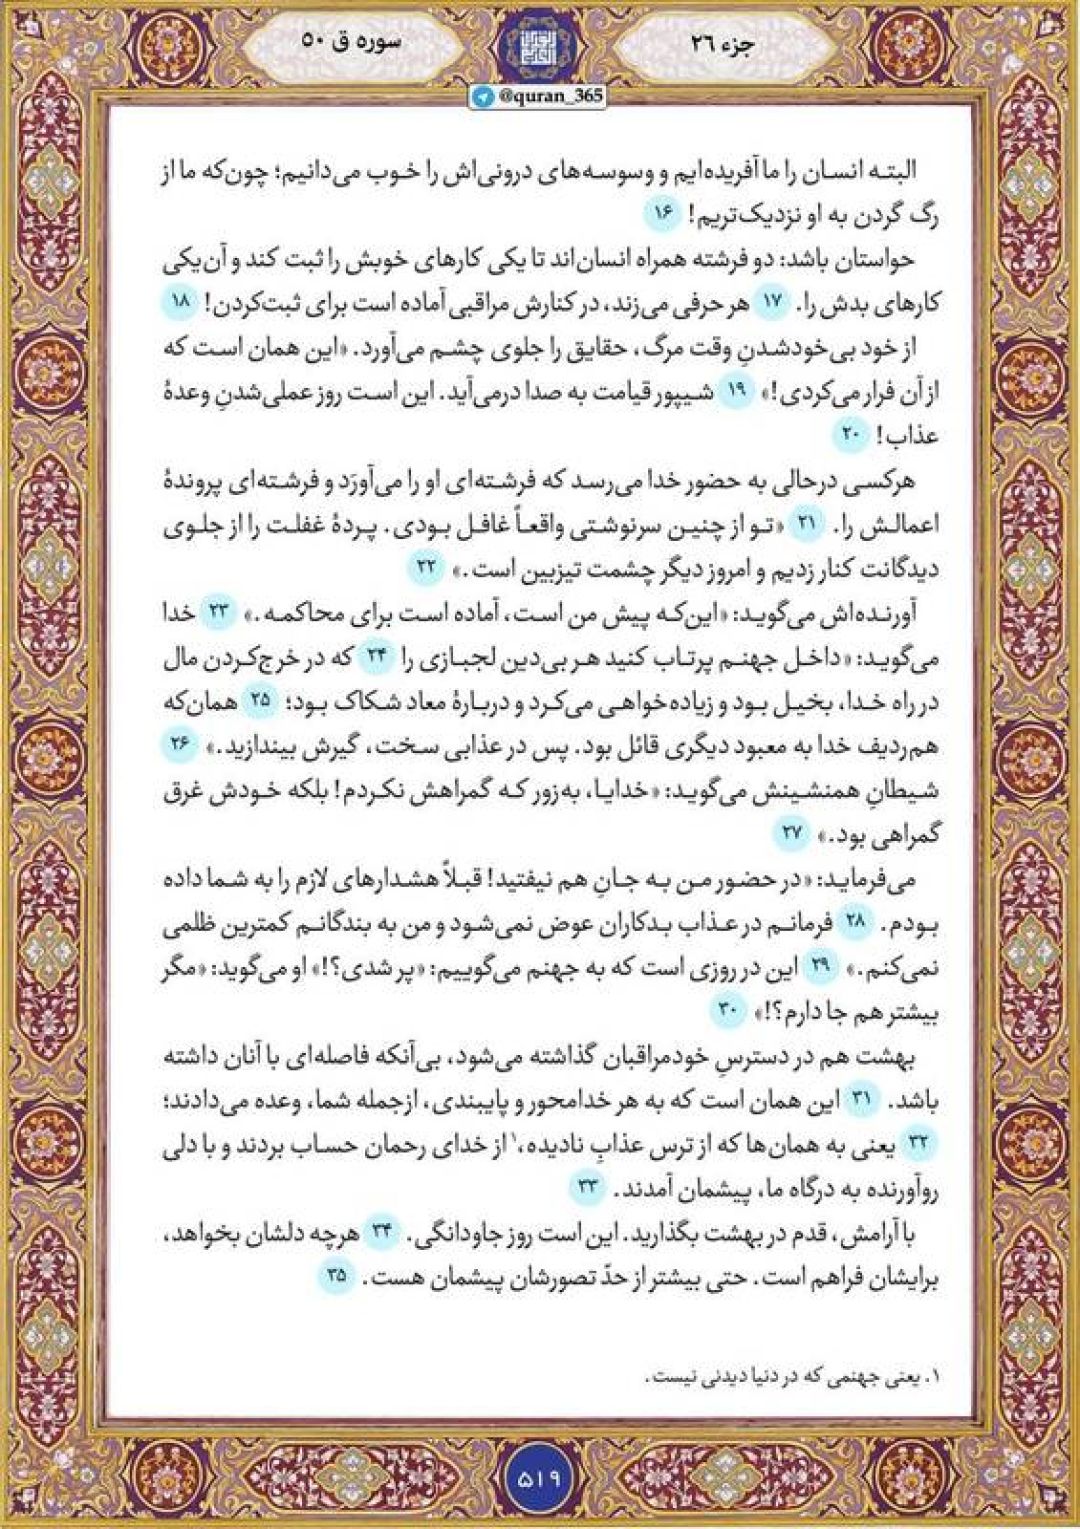 جزء ۲۶
سوره ق ۵۰
@quran_365
البته انسان را ما آفریده‌ایم و وسوسه‌های درونی‌اش را خوب می‌دانیم؛ چون‌که ما از
رگ گردن به او نزدیک‌تریم! ۱۶
حواستان باشد: دو فرشته همراه انسان‌اند تا یکی کارهای خوبش را ثبت کند و آن‌یکی
کارهای بدش را. ۱۷ هر حرفی می‌زند، در کنارش مراقبی آماده است برای ثبت‌کردن! ۱۸
از خود بی‌خودشدنِ وقت مرگ، حقایق را جلوی چشم می‌آورد. «این همان است که
از آن فرار می‌کردی!» ۱۹ شیپور قیامت به صدا درمی‌آید. این است روز عملی‌شدنِ وعدهٔ
عذاب! ۲۰
هرکسی درحالی به حضور خدا می‌رسد که فرشته‌ای او را می‌آورَد و فرشته‌ای پروندهٔ
اعمالش را. ۲۱ «تو از چنین سرنوشتی واقعاً غافل بودی. پردهٔ غفلت را از جلوی
دیدگانت کنار زدیم و امروز دیگر چشمت تیزبین است.» ۲۲
آورنده‌اش می‌گوید: «این‌که پیش من است، آماده است برای محاکمه.» ۲۳ خدا
می‌گوید: «داخل جهنم پرتاب کنید هر بی‌دین لجبازی را ۲۴ که در خرج‌کردن مال
در راه خدا، بخیل بود و زیاده‌خواهی می‌کرد و دربارهٔ معاد شکاک بود؛ ۲۵ همان‌که
هم‌ردیف خدا به معبود دیگری قائل بود. پس در عذابی سخت، گیرش بیندازید.» ۲۶
شیطانِ همنشینش می‌گوید: «خدایا، به‌زور که گمراهش نکردم! بلکه خودش غرق
گمراهی بود.» ۲۷
می‌فرماید: «در حضور من به جانِ هم نیفتید! قبلاً هشدارهای لازم را به شما داده
بودم. ۲۸ فرمانم در عذاب بدکاران عوض نمی‌شود و من به بندگانم کمترین ظلمی
نمی‌کنم.» ۲۹ این در روزی است که به جهنم می‌گوییم: «پر شدی؟!» او می‌گوید: «مگر
بیشتر هم جا دارم؟!» ۳۰
بهشت هم در دسترسِ خودمراقبان گذاشته می‌شود، بی‌آنکه فاصله‌ای با آنان داشته
باشد. ۳۱ این همان است که به هر خدامحور و پایبندی، ازجمله شما، وعده می‌دادند؛
۳۲ یعنی به همان‌ها که از ترس عذابِ نادیده،۱ از خدای رحمان حساب بردند و با دلی
روآورنده به درگاه ما، پیشمان آمدند. ۳۳
با آرامش، قدم در بهشت بگذارید. این است روز جاودانگی. ۳۴ هرچه دلشان بخواهد،
برایشان فراهم است. حتی بیشتر از حدّ تصورشان پیشمان هست. ۳۵
۱. یعنی جهنمی که در دنیا دیدنی نیست.
۵۱۹